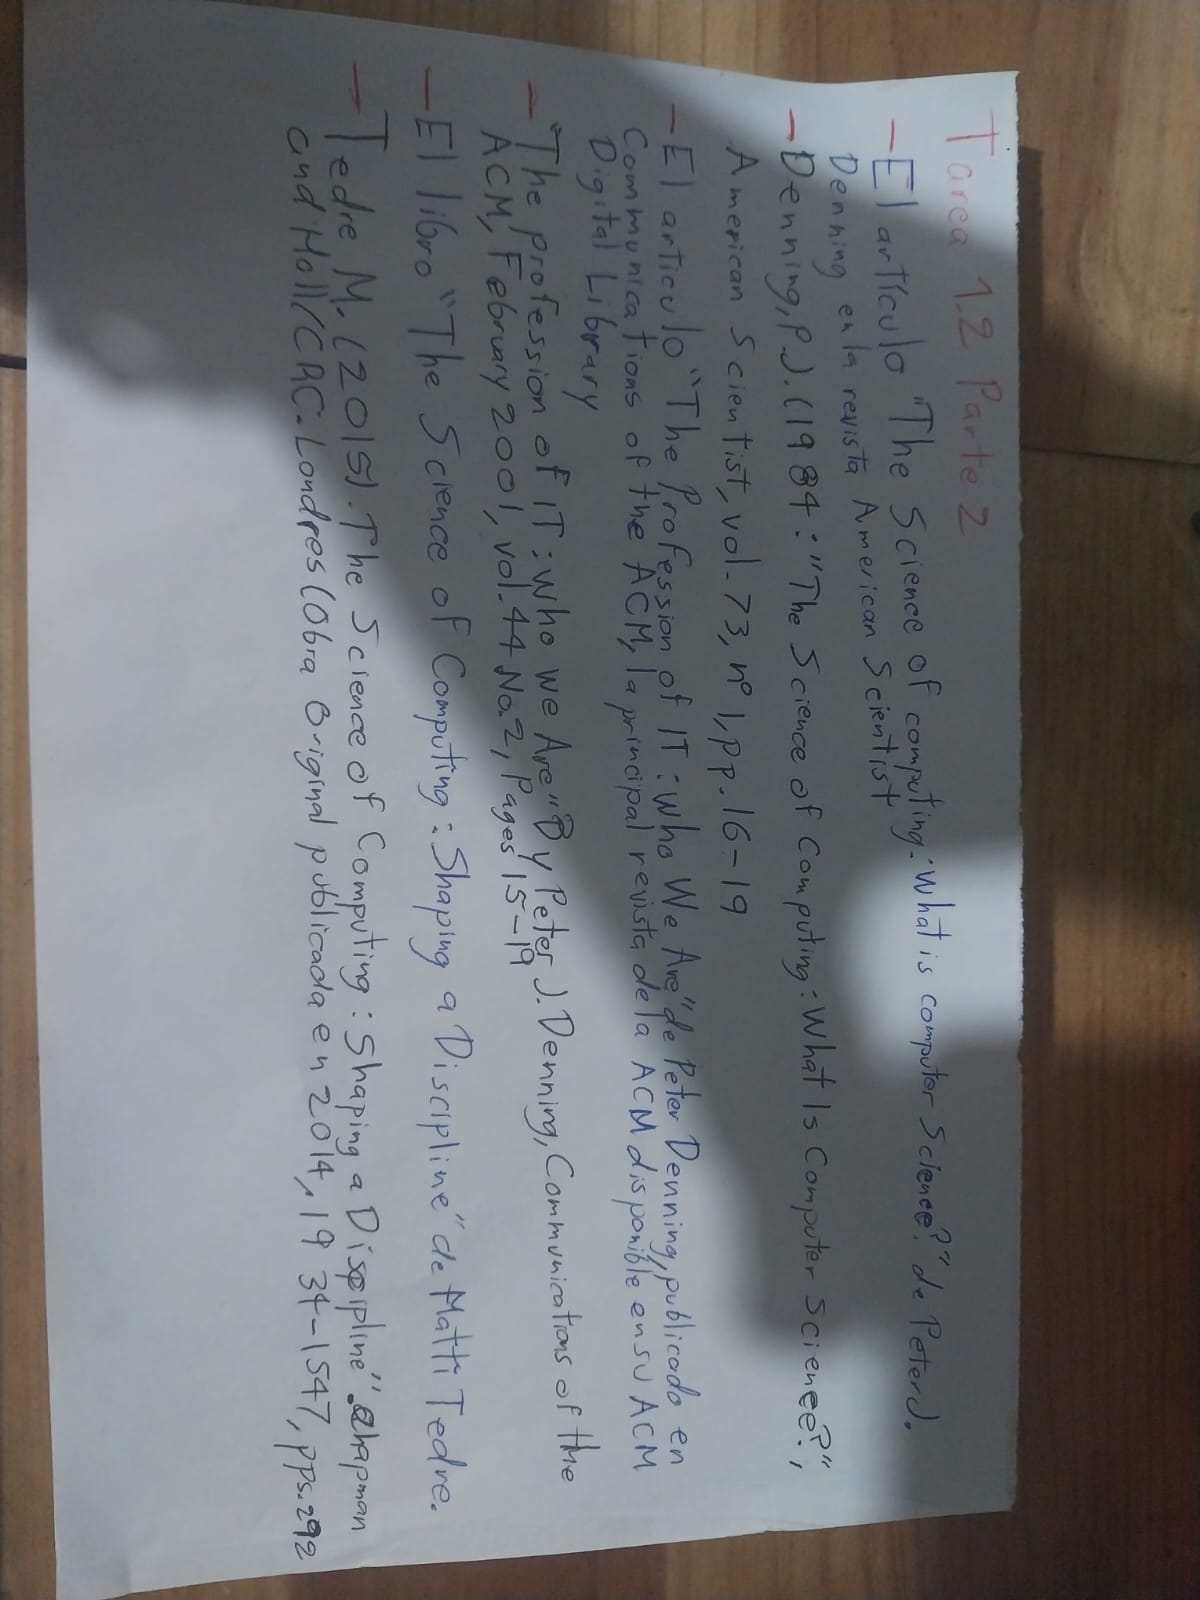 Tarea 1.2 Parte 2
- El artículo "The Science of computing: what is computer Science?" de Peter J.
Denning en la revista American Scientist
- Denning, P.J. (1984: "The Science of Computing: What Is Computer Science?",
American Scientist, vol. 73, nº 1, pp. 16-19
- El articulo "The Profession of IT: who We Are" de Peter Denning, publicado en
Communications of the ACM, la principal revista de la ACM disponible en su ACM
Digital Library
- "The profession of IT: who we Are" By Peter J. Denning, Communications of the
ACM, February 2001, vol. 44 No. 2, Pages 15-19
- El libro "The Science of Computing: Shaping a Discipline" de Matti Tedre.
- Tedre M. (2015). The Science of Computing: Shaping a Discipline". Chapman
and Hall/CRC: Londres (Obra Original publicada en 2014, 1934-1547, pps. 292